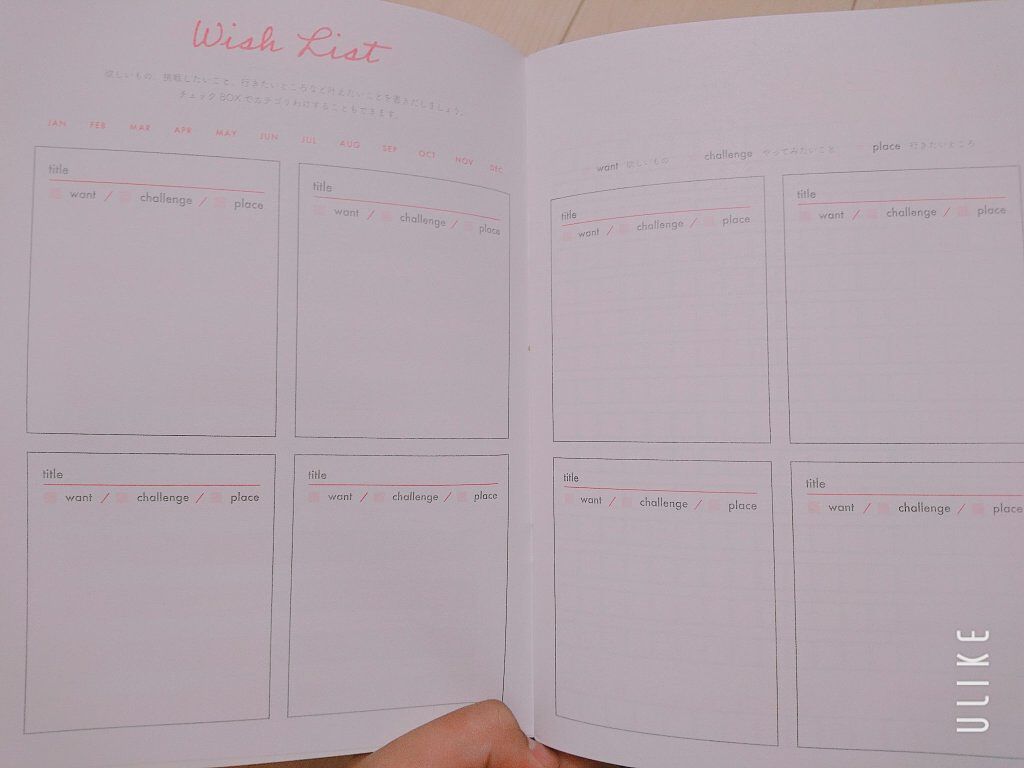 Wish List
欲しいもの、挑戦したいこと、行きたいところなど叶えたいことを書きだしましょう。
チェックBOXでカテゴリわけすることもできます。
JAN FEB MAR APR MAY JUN JUL AUG SEP OCT NOV DEC
title
want / challenge / place
title
want / challenge / place
title
want / challenge / place
title
want / challenge / place
want 欲しいもの challenge やってみたいこと place 行きたいところ
title
want / challenge / place
title
want / challenge / place
title
want / challenge / place
title
want / challenge / place
ULIKE